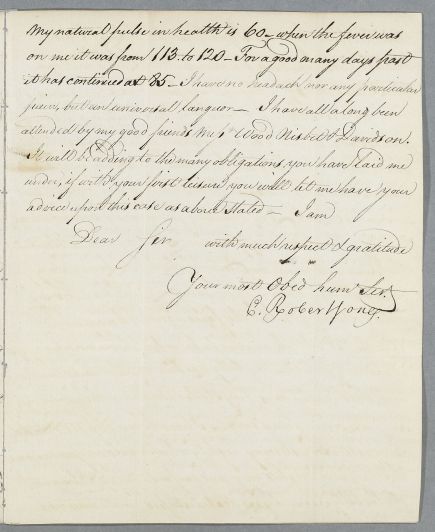 My natural pulse in health is 60 – when the fever was
on me it was from 113 to 120 – For a good many days past
it has continued at 85 – I have no headach nor any particular
pain, but an universal languor – I have all along been
attended by my good friends Mrs Wood Nisbet & Davidson.
It will be adding to the many obligations, you have laid me
under, if with your first leisure, you will let me have your
advice upon this case as above stated – I am
Dear Sir with much respect & gratitude
Your most Obed hum Ser.
E. Robertson